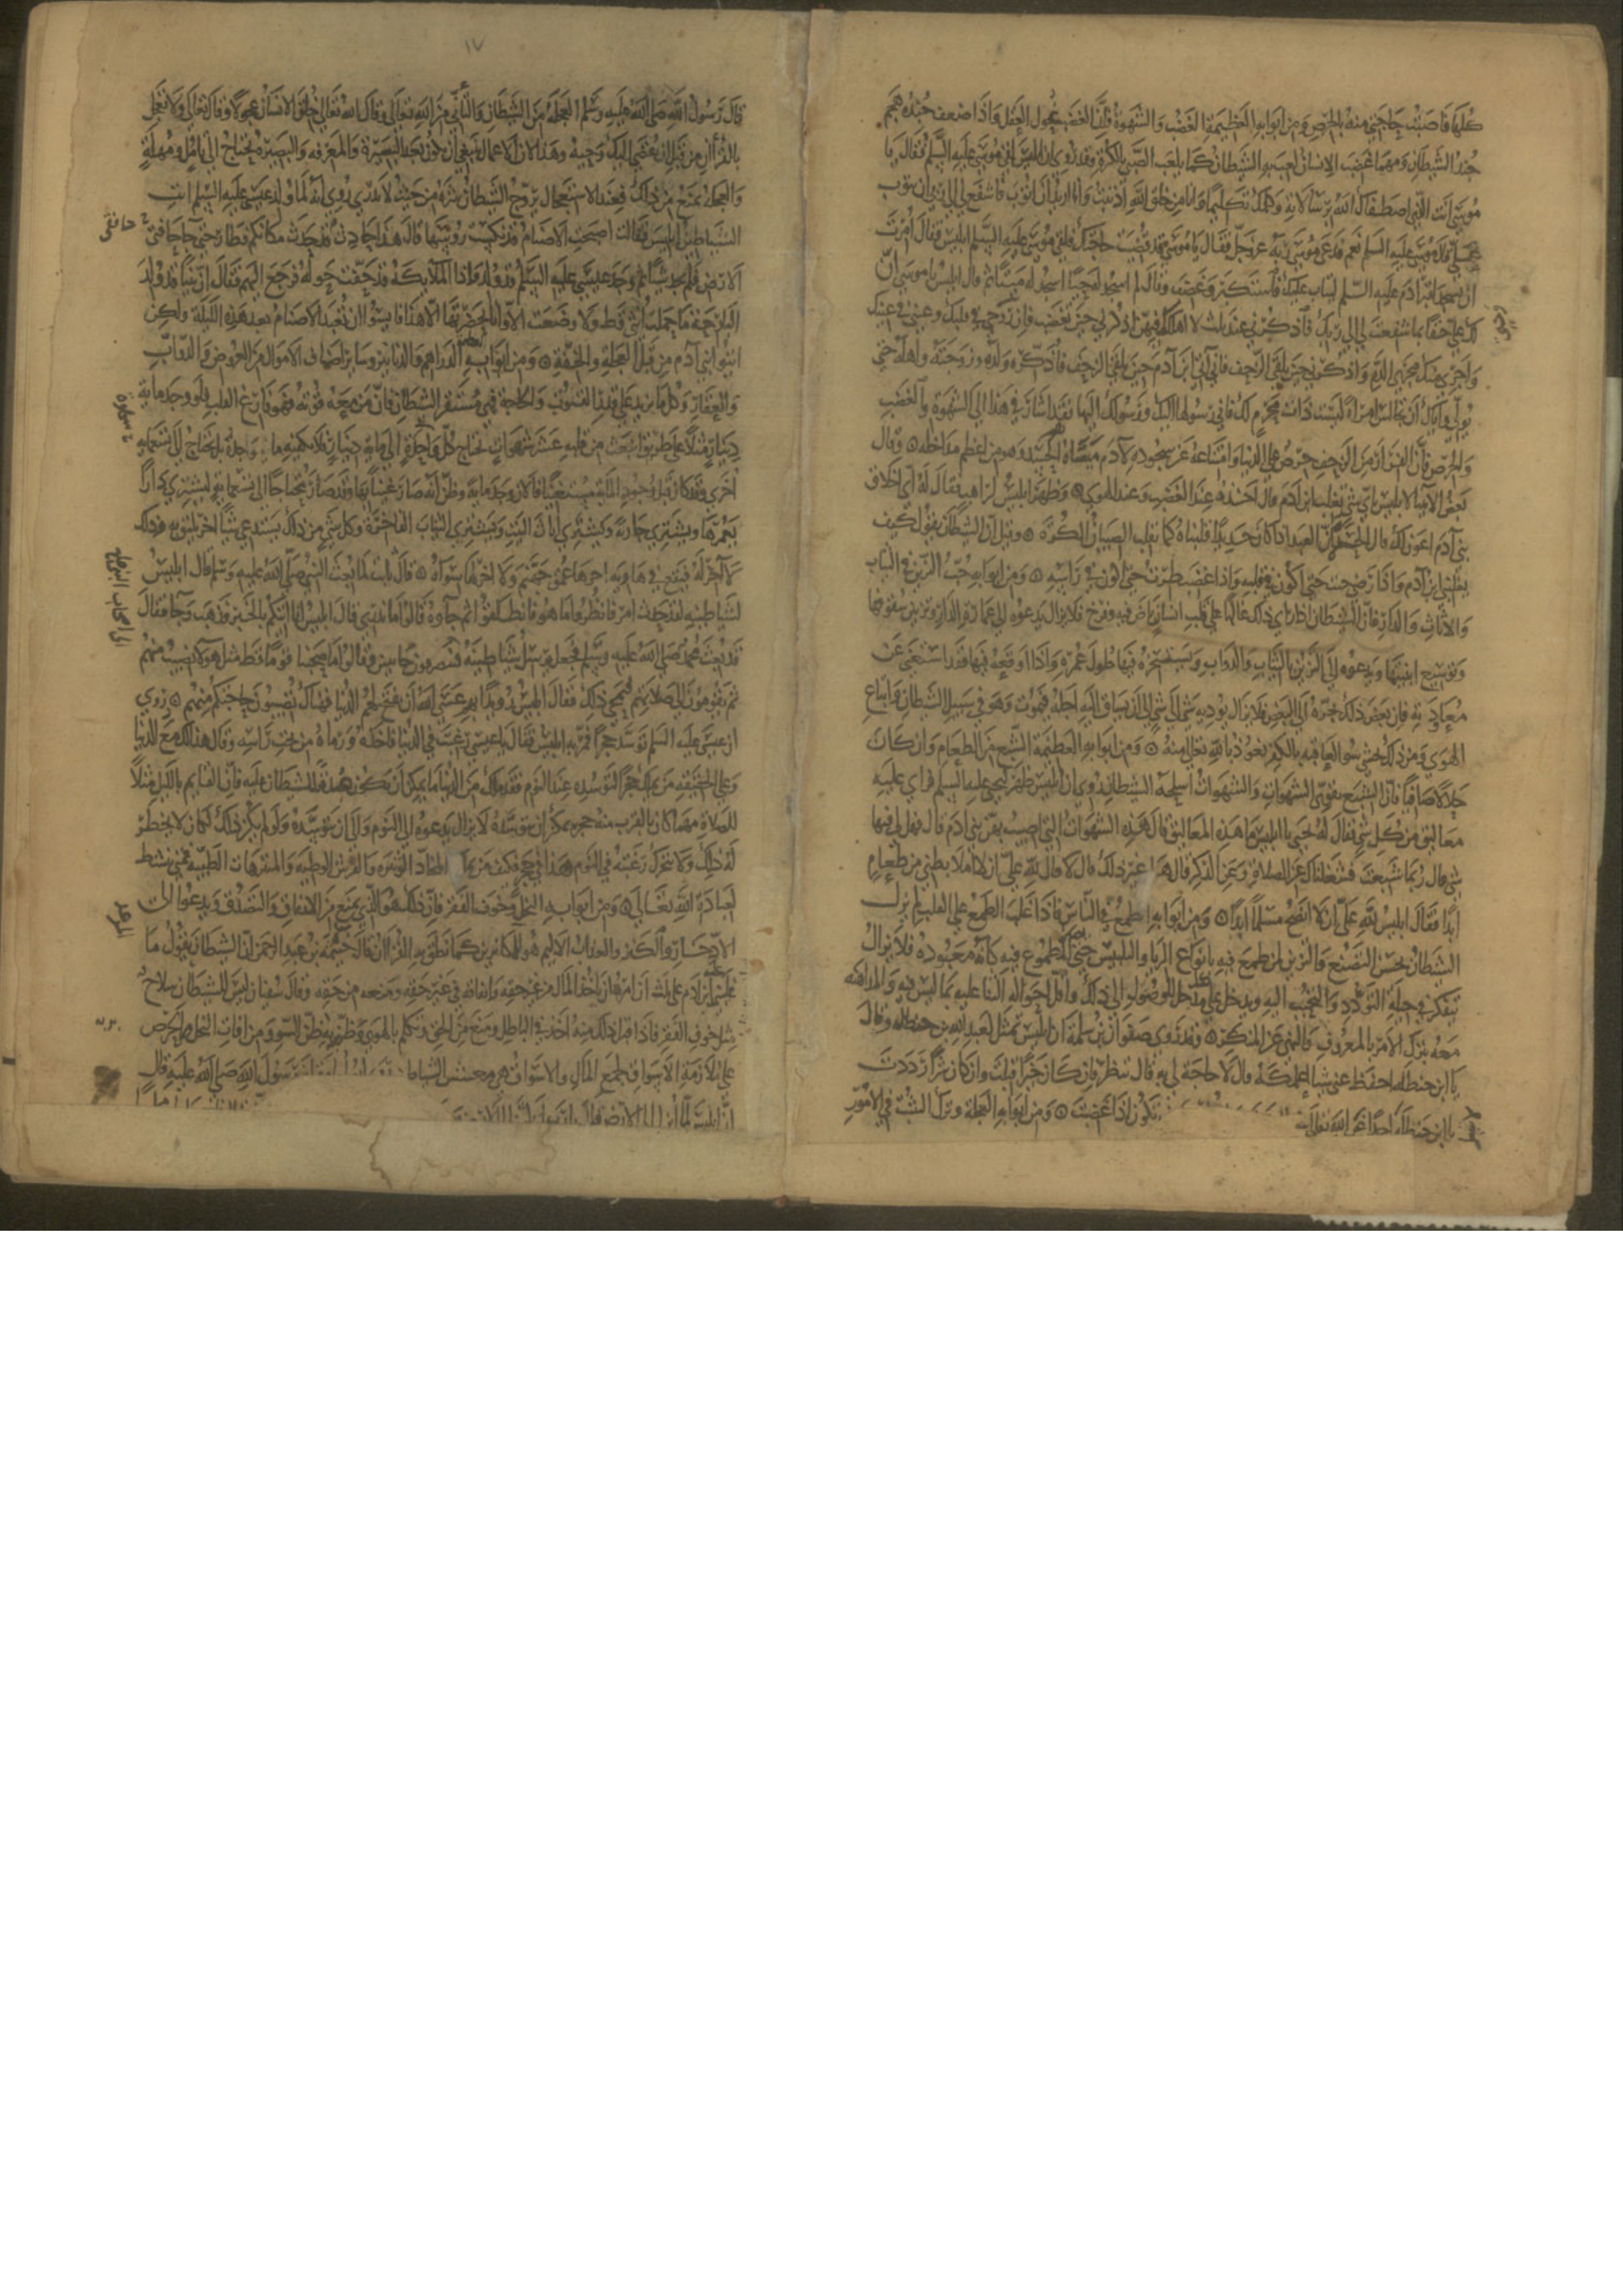 كلها فأصبت حاجتي منه بالحرص ومن ابوابه العظيمة الغضب والشهوة فان الغضب غول العقل واذا ضعف جند هجم
جند الشيطان ومهما غضب الانسان لعب به الشيطان كما يلعب الصبي بالكرة وقد روي ان ابليس لقي موسى عليه السلم فقال يا
موسى انت الذي اصطفاك الله برسالاته وكلمك تكليما وانا من خلق الله اذنبت وانا اريد ان اتوب فاشفع لي الى ربي ان يتوب
علي فقال موسى عليه السلم نعم فدعى موسى ربه عز وجل فقال يا موسى قد قضيت حاجتك فلقي موسى عليه السلم ابليس فقال امرت
ان تسجد لقبر ادم عليه السلم ليتاب عليك فاستكبر وغضب وقال لم اسجد له حيا اسجد له ميتا ثم قال ابليس يا موسى ان
لك علي حقا بما شفعت لي الى ربك فاذكرني عند ثلث لا اهلكك فيهن اذكرني حين تغضب فان روحي في قلبك وعيني في عينك
واجري منك مجرى الدم واذكرني حين تلقى الزحف فاني آتي ابن آدم حين يلقى الزحف فاذكره ولده وزوجته واهله حتى
يولي واياك ان تجالس امراة ليست ذات محرم لك فاني رسولها اليك ورسولك اليها فقد اشار في هذا الى الشهوة والغضب
والحرص فان الفرار من الزحف حرص على الدنيا وامتناعه عن سجوده لآدم ميتا هو الحسد وهو من اعظم مداخله وقال
بعض الانبيا لابليس باي شي تغلب ابن ادم قال اخذه عند الغضب وعند الهوى وظهر ابليس لراهب فقال له اي اخلاق
بني آدم اعون لك قال الحدة ان العبد اذا كان حديدا قلبناه كما يقلب الصبيان الكرة وقيل ان الشيطان يقول كيف
يغلبني ابن آدم واذا رضي جئت حتى اكون في قلبه واذا غضب طرت حتى اكون في راسه ومن ابوابه حب التزين في الثياب
والاثاث والدار فان الشيطان اذا راى ذلك غالبا على قلب انسان باض فيه وفرخ فلا يزال يدعوه الى عمارة الدار وتزيين سقوفها
وتوسيع ابنيتها ويدعوه الى التزين بالثياب والدواب ويستسخره فيها طول عمره واذا اوقعه فيها فقد استغنى عن
معاودته فان بعض ذلك يجره الى البعض فلا يزال يؤديه شي الى شي الى ان يساق اليه اجله فيموت وهو في سبيل الشيطان واتباع
الهوى ومن ذلك يخشى سو العاقبه بالكفر نعوذ بالله تعالى منه ومن ابوابه العظيمة الشبع من الطعام وان كان
حلالا صافيا فان الشبع يقوي الشهوات والشهوات اسلحة الشيطان روي ان ابليس ظهر ليحيى عليه السلم فراى عليه
معاليق من كل شي فقال له يحيى يا ابليس ما هذه المعاليق قال هذه الشهوات التي اصيب بهن بني ادم قال فهل لي فيها
شي قال ربما شبعت فشغلناك عن الصلاة وعن الذكر قال هل غير ذلك قال لا قال لله علي ان لا املا بطني من طعام
ابدا فقال ابليس لله علي ان لا انصح مسلما ابدا ومن ابوابه الطمع في الناس فاذا غلب الطمع على القلب لم يزل
الشيطان يحسن التصنع والتزين لمن طمع فيه بانواع الريا والتلبيس حتى يصير المطموع فيه كانه معبوده فلا يزال
يتفكر في حيلة التودد والتحبب اليه ويدخل كل مدخل للوصول الى ذلك واقل احواله الثنا عليه بما ليس فيه والمداهنه
معه بترك الامر بالمعروف والنهي عن المنكر وقد روى صفوان بن سليم ان ابليس تمثل لعبد الله بن حنظله وقال
يا ابن حنظله احفظ عني شيا اعلمكه قال لا حاجة لي به قال تنظر فان كان خيرا قبلت وان كان شرا رددت
يا ابن حنظله احدا غير الله تعالى تكون اذا غضبت ومن ابوابه العجلة وترك التثبت في الامور
قال رسول الله صلى الله عليه وسلم العجلة من الشيطان والتأني من الله تعالى وقال الله تعالى خلق الانسان عجولا وقال تعالى ولا تعجل
بالقرآن من قبل ان يقضى اليك وحيه وهذا لان الاعمال ينبغي ان تكون بعد البصيرة والمعرفه والبصيرة تحتاج الى تامل ومهلة
والعجلة تمنع من ذلك فعند الاستعجال يروج الشيطان شره من حيث لا يدري روي انه لما ولد عيسى عليه السلم اتت
الشياطين ابليس فقالت اصبحت الاصنام قد نكست روسها قال هذا حادث قد حدث مكانكم فطار حتى جا خافقي
الارض فلم يجد شيا ثم وجد عيسى عليه السلم قد ولد واذا الملائكة قد حفت حوله فرجع اليهم فقال ان نبيا قد ولد
البارحة ما حملت انثى قط ولا وضعت الا وانا بحضرتها الا هذا فايسوا ان تعبد الاصنام بعد هذه الليلة ولكن
ائتوا بني آدم من قبل العجلة والخفة ومن ابوابه العظيمة الدراهم والدنانير وساير اصناف الاموال من العروض والدواب
والعقار وكل ما يزيد على قدر القوت والحاجة فهي مستقر الشيطان فان من معه قوته فهو فارغ القلب فلو وجد ماية
دينار مثلا على طريق انبعث من قلبه عشر شهوات تحتاج كل واحدة الى ماية دينار فلا يكفيه ما وجده بل يحتاج الى تسعماية
اخرى وقد كان قبل وجود الماية مستغنيا فالان وجد ماية وظن انه صار غنيا بها وقد صار محتاجا الى تسعماية ليشتري دارا
يعمرها ويشتري جارية ويشتري اثاث البيت ويشتري الثياب الفاخرة وكل شي من ذلك يستدعي شيا اخر يليق به وذلك
لا آخر له فيقع في هاوية اخرها عمق جهنم ولا اخر لها سواه قال ثابت لما بعث النبي صلى الله عليه وسلم قال ابليس
لشياطينه لقد حدث امر فانظروا ما هو فانطلقوا ثم جاوه قالوا ما ندري قال ابليس انا اتيكم بالخبر فذهب وجا فقال
قد بعث محمد صلى الله عليه وسلم فجعل يرسل شياطينه فينصرفون خايبين وقالوا ما صحبنا قوما قط مثل هولا نصيب منهم
ثم يقومون الى صلاتهم فيمحي ذلك فقال ابليس رويدا بهم عسى الله ان يفتح لهم الدنيا فهناك تصيبون حاجتكم منهم وروي
ان عيسى عليه السلم توسد حجرا فمر به ابليس فقال يا عيسى رغبت في الدنيا فاخذه ورماه من تحت راسه وقال هذا لك مع الدنيا
وعلى الحقيقه من يملك حجرا يتوسده عند النوم فقد ملك من الدنيا ما يمكن ان يكون عدة للشيطان عليه فان القايم بالليل مثلا
للصلاة مهما كان بالقرب منه حجر يمكن ان يتوسده لا يزال يدعوه الى النوم والى ان يتوسده ولو لم يكن ذلك لكان لا يخطر
له ذلك ولا تتحرك رغبته في النوم هذا في حجر فكيف من يملك المخاد الوثيرة والفرش الوطية والمتنزهات الطيبة فمتى ينشط
لعبادة الله تعالى ومن ابوابه البخل وخوف الفقر فان ذلك هو الذي يمنع من الانفاق والتصدق ويدعوا الى
الادخار والكنز والعذاب الاليم هو للمكاثرين كما نطق به القرآن قال خيثمة بن عبد الرحمن ان الشيطان يقول ما
غلبني ابن ادم على ثلث ان امره ان ياخذ المال من غير حقه وانفاقه في غير حقه ومنعه من حقه وقال سفيان ليس للشيطان سلاح
مثل خوف الفقر فاذا قبل ذلك منه اخذ في الباطل ومنع من الحق وتكلم بالهوى وظن بربه ظن السو ومن افات البخل الحرص
على ملازمة الاسواق لجمع المال والاسواق هي معشش الشياطين رسول الله صلى الله عليه قال
ان ابليس لما نزل الى الارض قال يا رب